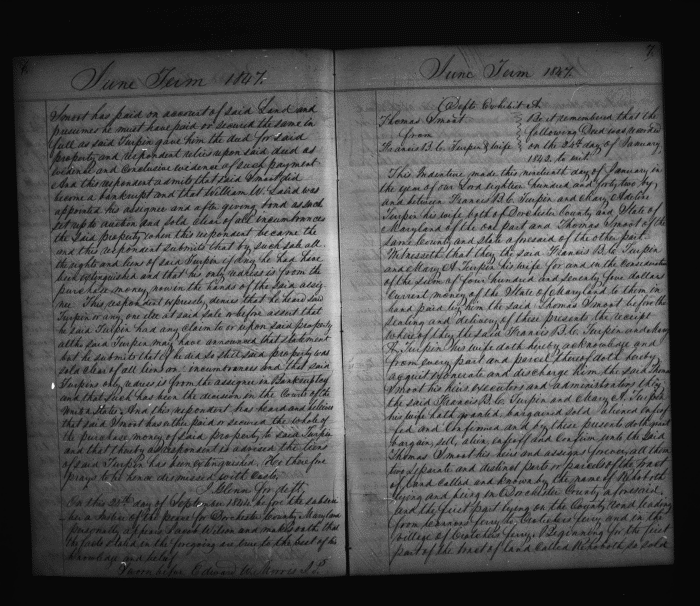 June Term 1847.
Smoot has paid on account of said Land and
presumes he must have paid or secured the same in
full as said Turpin gave him the deed for said
property and respondent relies upon said deed as
evidence and Conclusive evidence of such payment
And this respondent admits that said Smoot did
become a bankrupt and that William W. Laird was
appointed his assignee and after giving bond as such
set up to auction and sold clear of all incumbrances
the said property when this respondent became the
and this respondent submits that by such sale all
the rights and liens of said Turpin if any he had have
been extinguished and that his only redress is from the
purchase money now in the hands of the said assig-
nee. This respondent expressly denies that he heard said
Turpin or any one else at said sale or before assert that
he said Turpin had any claim to or upon said property
altho said Turpin may have announced that statement
but he submits that if he did so still said property was
sold clear of all liens or incumbrances and that said
Turpins only redress is from the assignee in Bankruptcy
and that such has been the decision in the Courts of the
United States. And this respondent has heard and believes
that said Smoot has either paid or secured the whole of
the purchase money of said property to said Turpin
and that thereby as respondent is advised the liens
of said Turpin has been extinguished. He therefore
prays to be hence dismissed with Costs.
J. Glenn for deft.
On this 20th day of September 1844 before the subscri-
ber a Justice of the peace for Dorchester County Maryland
personally appears Jacob Wilson and makes oath that
the facts stated in the foregoing are true to the best of his
knowledge and belief
Sworn before Edward
June Term 1847.
Defts Exhibit A
Thomas Smoot } Be it remembered that the
from } following Deed was recorded
Francis B. C. Turpin & wife } on the 24th day of January
1842 to wit
This Indenture made this nineteenth day of January in
the year of our Lord eighteen hundred and forty two by
and between Francis B. C. Turpin and Mary Adeline
Turpin his wife both of Dorchester County and State of
Maryland of the one part and Thomas Smoot of the
same County and State aforesaid of the other part
Witnesseth that they the said Francis B. C. Turpin
and Mary A. Turpin his wife for and in the Consideration
of the sum of four hundred and seventy four dollars
Current money of the State of Maryland to them in
hand paid by him the said Thomas Smoot before the
sealing and delivery of these presents the receipt
whereof they the said Francis B. C. Turpin and Mary
A. Turpin his wife doth hereby acknowledge and
from every part and parcel thereof doth hereby
acquit exonerate and discharge him the said Thomas
Smoot his heirs executors and administrators they
the said Francis B. C. Turpin and Mary A. Turpin
his wife hath granted bargained sold aliened enfeof
fed and Confirmed and by these presents doth grant
bargain, sell, alien enfeoff and Confirm unto the said
Thomas Smoot his heirs and assigns forever, all them
two separate and distinct parts or parcels of the tract
of land Called and known by the name of Rehoboth
lying and being in Dorchester County aforesaid
and the first part lying on the County road leading
from Cannons ferry to Crotchers ferry and in the
village of Crotchers ferry, Beginning for the first
part of the tract of land Called Rehoboth so sold